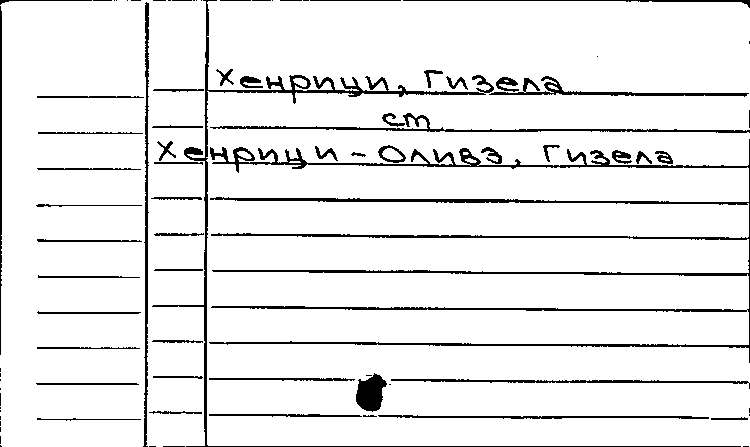 Хенрици, Гизела
ст
Хенрици - Оливэ, Гизела